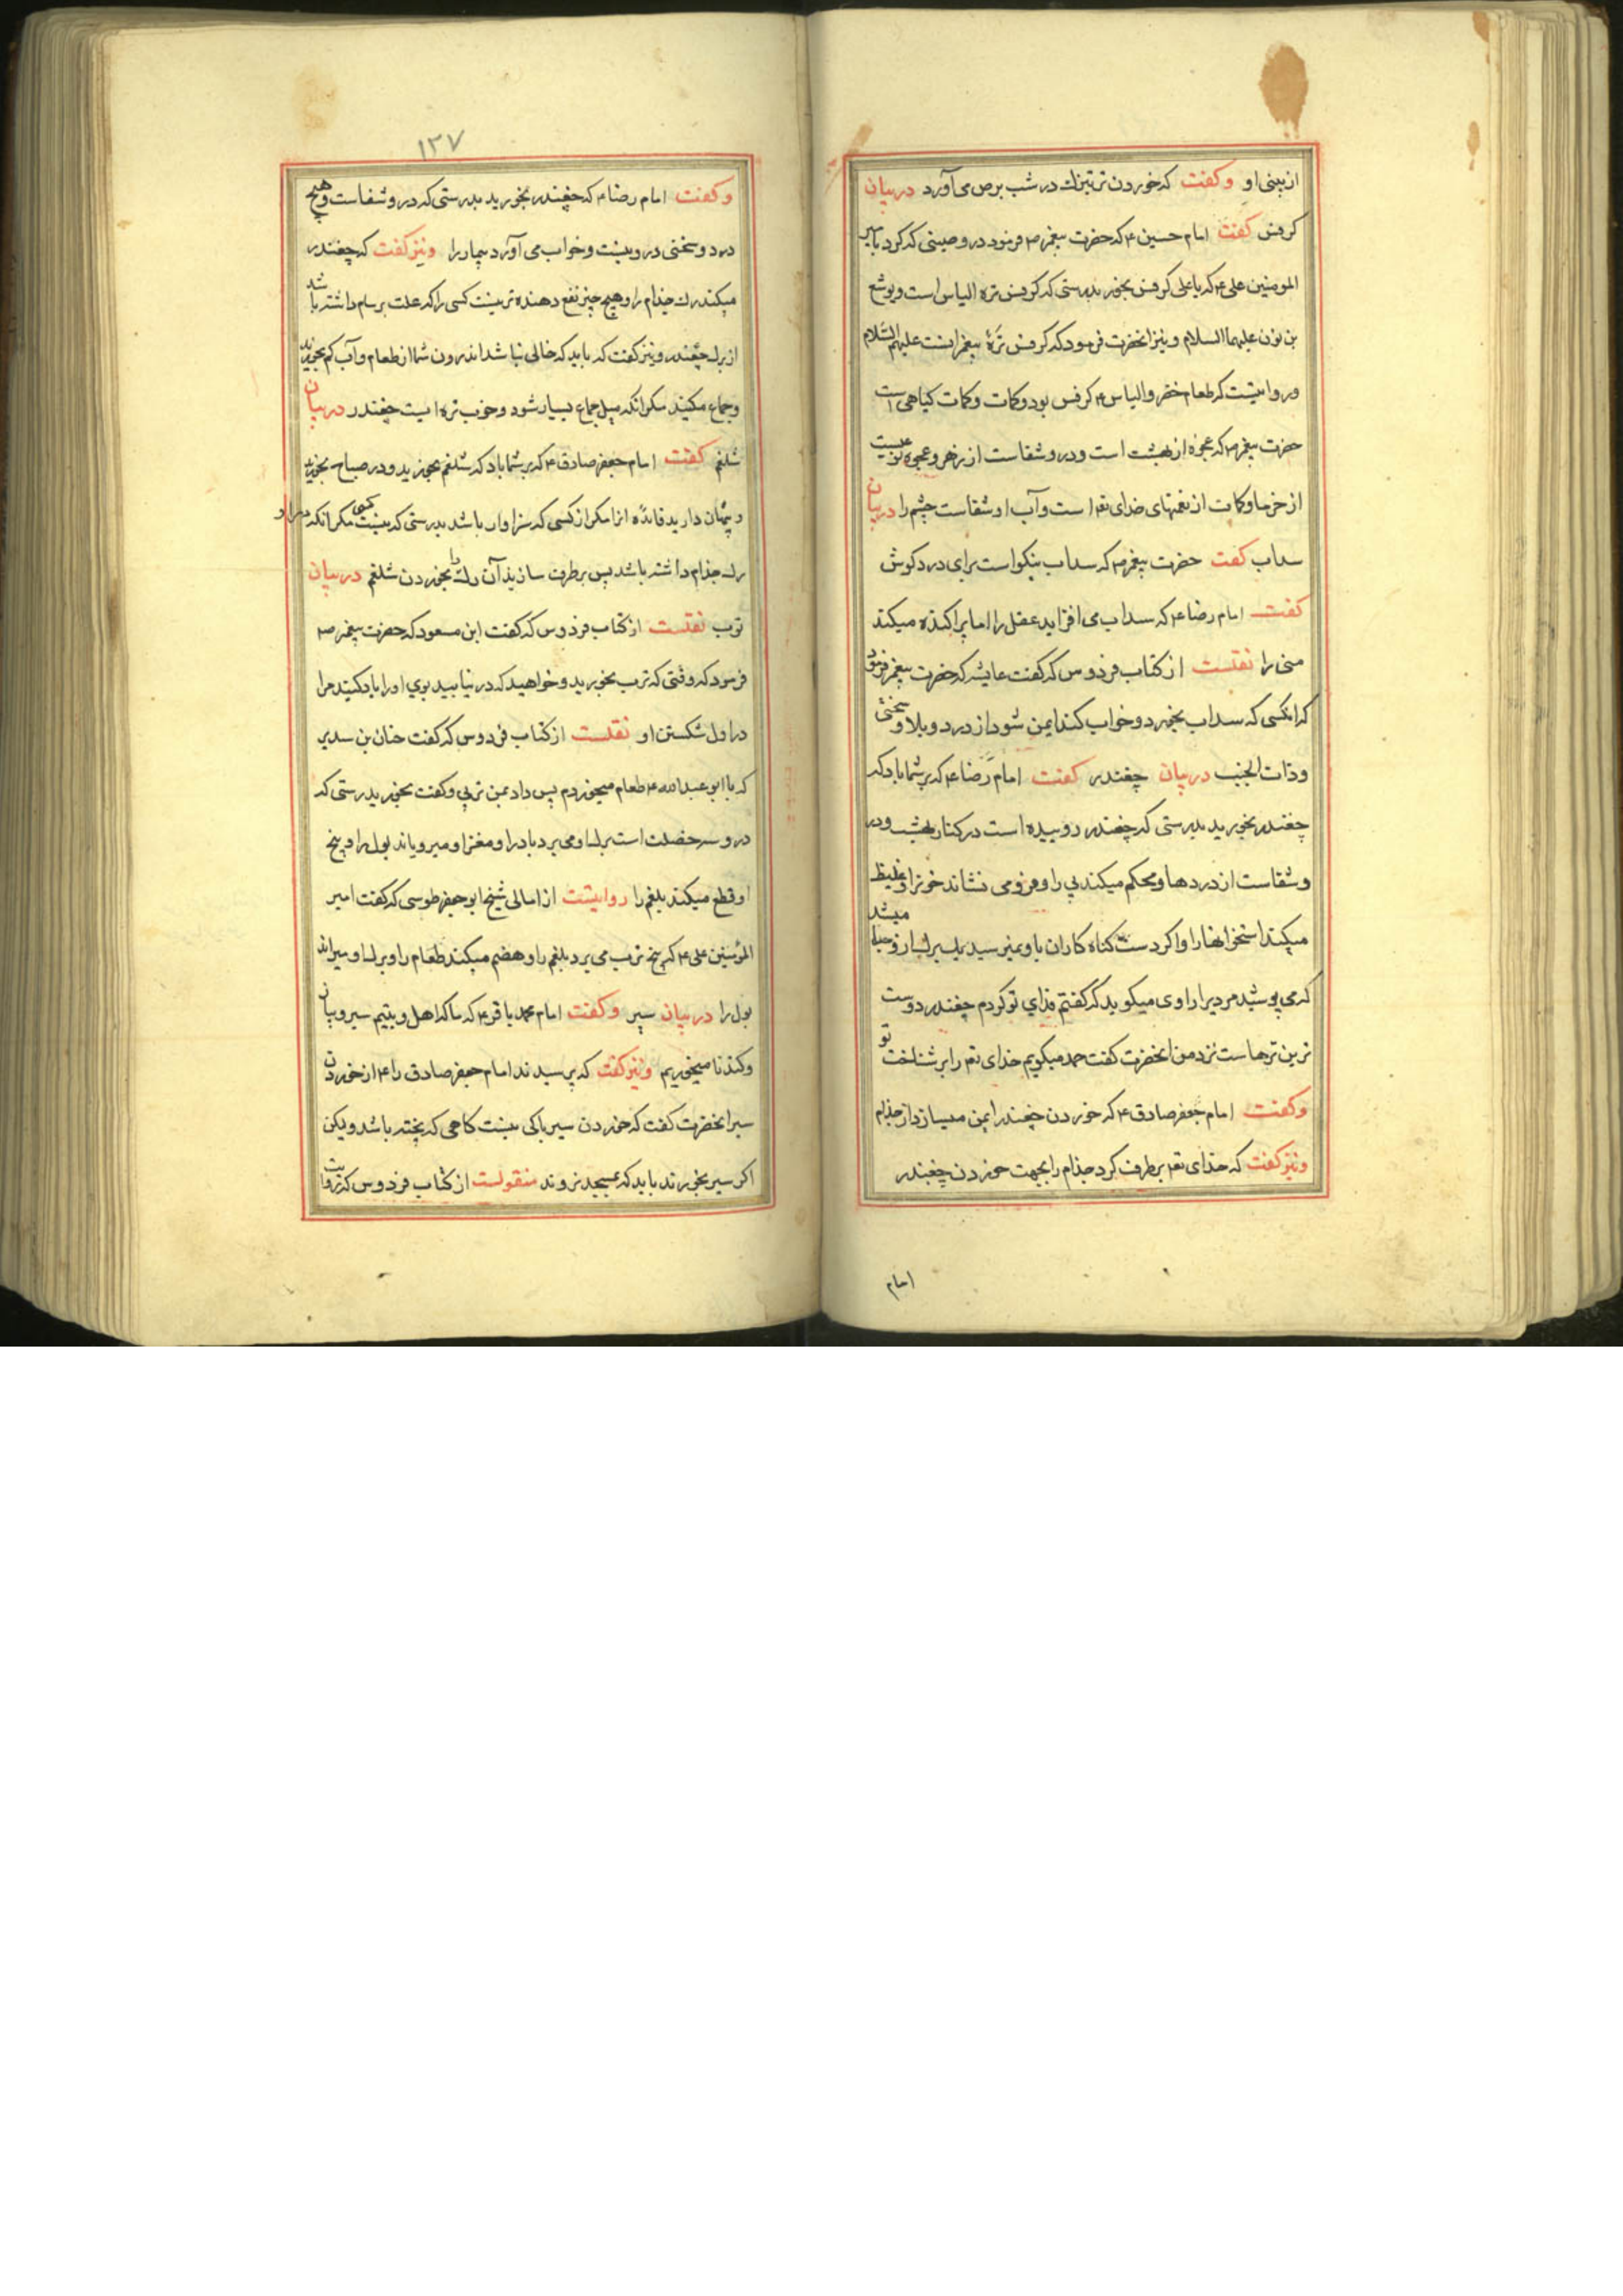 از بینی او و کفت که خوردن ترتیزك در شب برص می آورد در بیان
کرفس کفت امام حسین ع که حضرت پیغمبر ص فرمود در وصیتی که کرد بامیر
المومنین علی ع که یا علی کرفس بخور بدرستی که کرفس تره الیاس است و یوشع
بن نون علیهما السلام و نیز انحضرت فرمود که کرفس ترهٔ پیغمبرانست علیهم السّلام
و روایتست که طعام خضر و الیاس ع کرفس بود و کمات و کمات کیاهی است
حضرت پیغمبر ص که عجوه از بهشت است و در و شفاست از زهر و عجوه نوعیست
از خرما و کمات از نعمتهای خدای تع است و آب او شفاست چشم را در بیان
سداب کفت حضرت پیغمبر ص که سداب نیکو است برای درد کوش
کفت امام رضا ع که سداب می افزاید عقل را اما پراکنده میکند
منی را نقلست از کتاب فردوس که کفت عایشه که حضرت پیغمبر فرمود
که انکسی که سداب بخورد و خواب کند ایمن شود از درد و بلا و سختی
و ذات الجنب در بیان چغندر کفت امام رضا ع که بر شما باد که
چغندر بخورید بدرستی که چغندر روییده است در کنار بهشت و در
و شفاست از دردها و محکم میکند پی را و فرو می نشاند خونرا و غلیظ
میکند استخوانها را و اکر دست کناه کاران باو نمیرسید یك برك ازو میشد
که می پوشید مردیرا راوی میکوید که کفتم فدای تو کردم چغندر دوست
ترین ترهاست نزد من انحضرت کفت حمد میکویم خدای تع را بر شناخت تو
و کفت امام جعفر صادق ع که خوردن چغندر ایمن میسازد از جذام
و نیز کفت که خدای تع برطرف کرد جذام را بجهت خوردن چغندر
امام
۱۳۷
و کفت امام رضا ع که چغندر بخورید بدرستی که در و شفاست و هیچ
درد و سختی در و نیست و خواب می آورد بیمار را و نیز کفت که چغندر
میکند رك جذام را و هیچ چیز نفع دهنده تر نیست کسی را که علت برسام داشته باشد
از برك چغندر و نیز کفت که باید که خالی نباشد اندرون شما از طعام و آب کم بخورید
و جماع مکنید مکر انکه میل جماع بسیار شود و خوب تره ایست چغندر در بیان
شلغم کفت امام جعفر صادق ع که بر شما باد که شلغم بخورید و در صباح بخورید
و پنهان دارید فائده انرا مکر از کسی که سزاوار باشد بدرستی که نیست کسی مکر انکه مر او
رك جذام داشته باشد پس برطرف سازید آن رك را بخوردن شلغم در بیان
ترب نقلست از کتاب فردوس که کفت ابن مسعود که حضرت پیغمبر ص
فرمود که وقتی که ترب بخورید و خواهید که در نیابید بوي او را یاد کنید مرا
در اول شکستن او نقلست از کتاب فردوس که کفت حنان بن سدیر
که با ابو عبد الله ع طعام میخوردم پس داد بمن تربی و کفت بخور بدرستی که
در و سه خصلت است برك او می برد باد را و مغز او میرویاند بول را و بیخ
او قطع میکند بلغم را روایتست از امالی شیخ ابو جعفر طوسی که کفت امیر
المؤمنین علی ع که بیخ ترب می برد بلغم را و هضم میکند طعام را و برك او میراند
بول را در بیان سیر و کفت امام محمد باقر ع که ما که اهل و بیتیم سیر و پیاز
و کندنا میخوریم و نیز کفت که پرسیدند امام جعفر صادق را ع از خوردن
سیر انحضرت کفت که خوردن سیر باکی نیست کاهی که پخته باشد و لیکن
اکر سیر بخورند باید که بمسجد نروند منقولست از کتاب فردوس که روایت